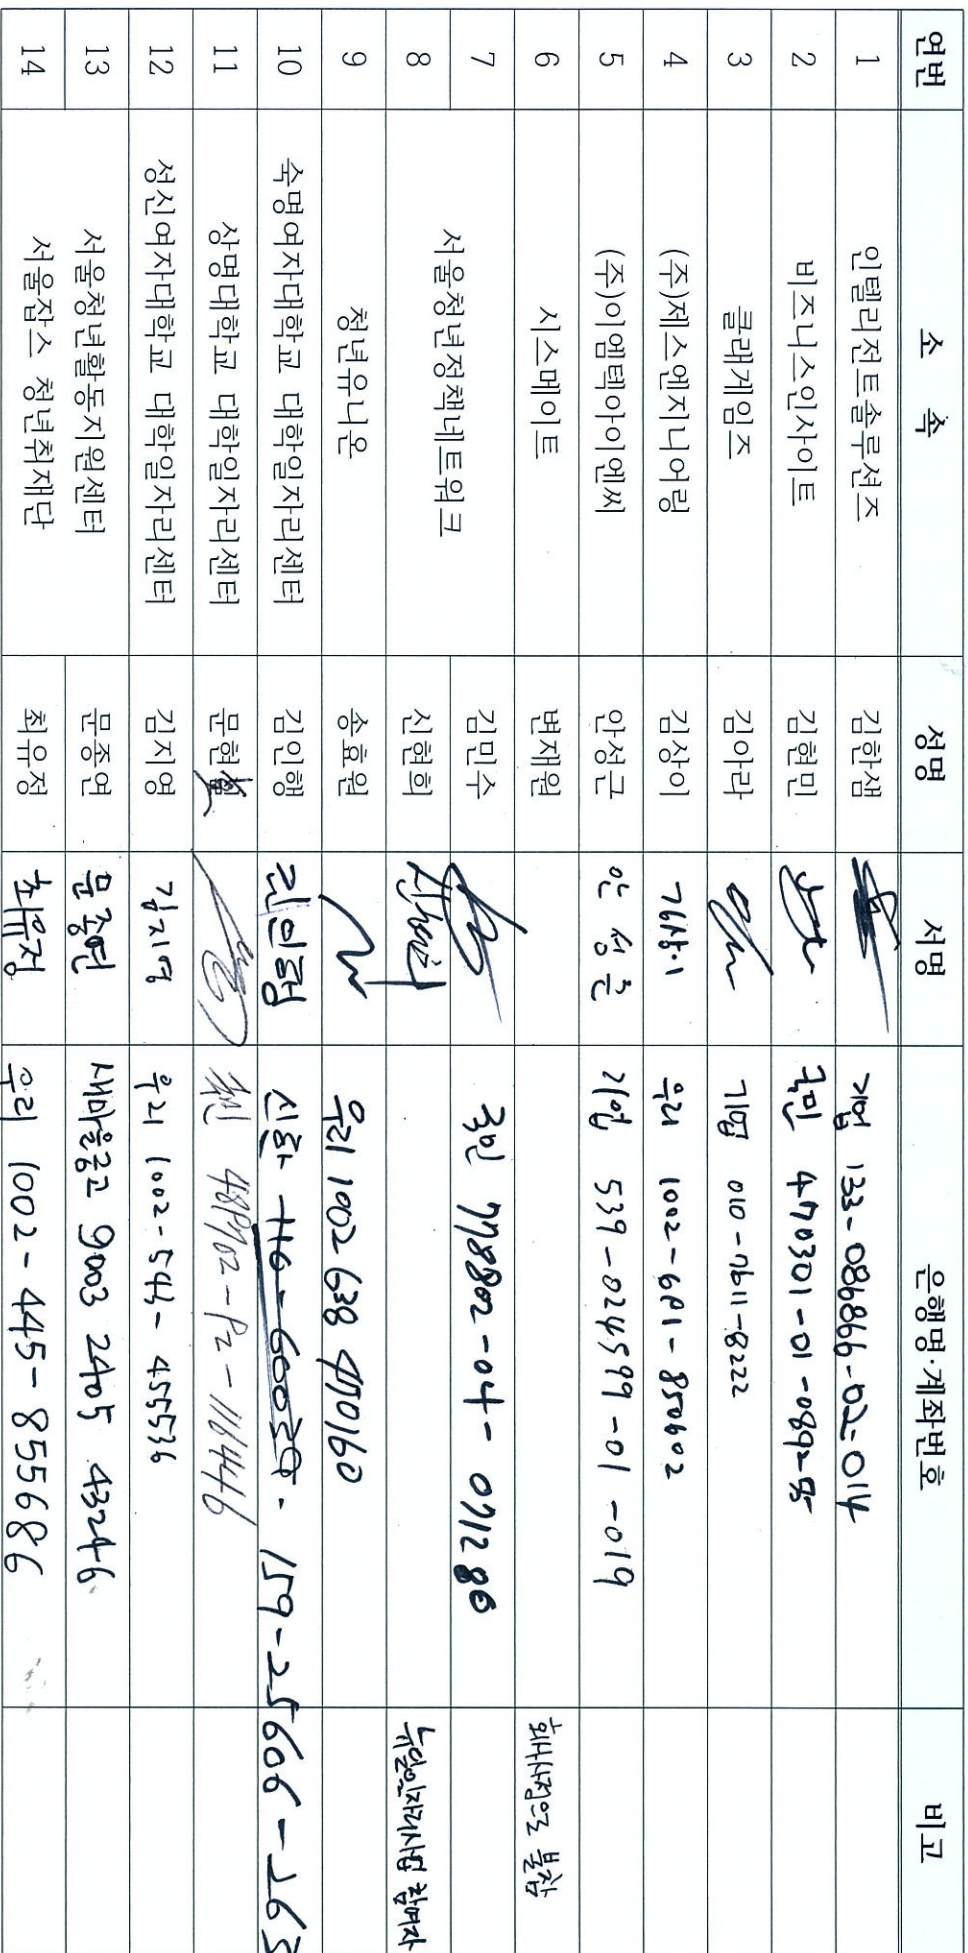 연번 소 속 성명 서명 은행명·계좌번호 비고
1 인텔리전트솔루션즈 김한샘 기업 133-086866-02-014
2 비즈니스인사이트 김현민 국민 470301-01-089255
3 클래게임즈 김아라 기업 010-7611-8222
4 (주)제스엔지니어링 김상이 김상이 우리 1002-691-850602
5 (주)이엠텍아이엔씨 안성근 안성근 기업 539-024599-01-019
6 시스메이트 변재원 회사사정으로 불참
7 서울청년정책네트워크 김민수 국민 778802-04-071286
8 신현희 신현희 뉴딜일자리사업 참여자
9 청년유니온 송효원 우리 1002 638 470160
10 숙명여자대학교 대학일자리센터 김인행 김인행 신한 110-60039. 159-25606-263
11 상명대학교 대학일자리센터 문현
12 성신여자대학교 대학일자리센터 김지영 김지영 우리 1002-543-455536
13 서울청년활동지원센터 문종연 문종연 새마을금고 9003 2405 43246
14 서울잡스 청년취재단 최유정 최유정 우리 1002-445-855686